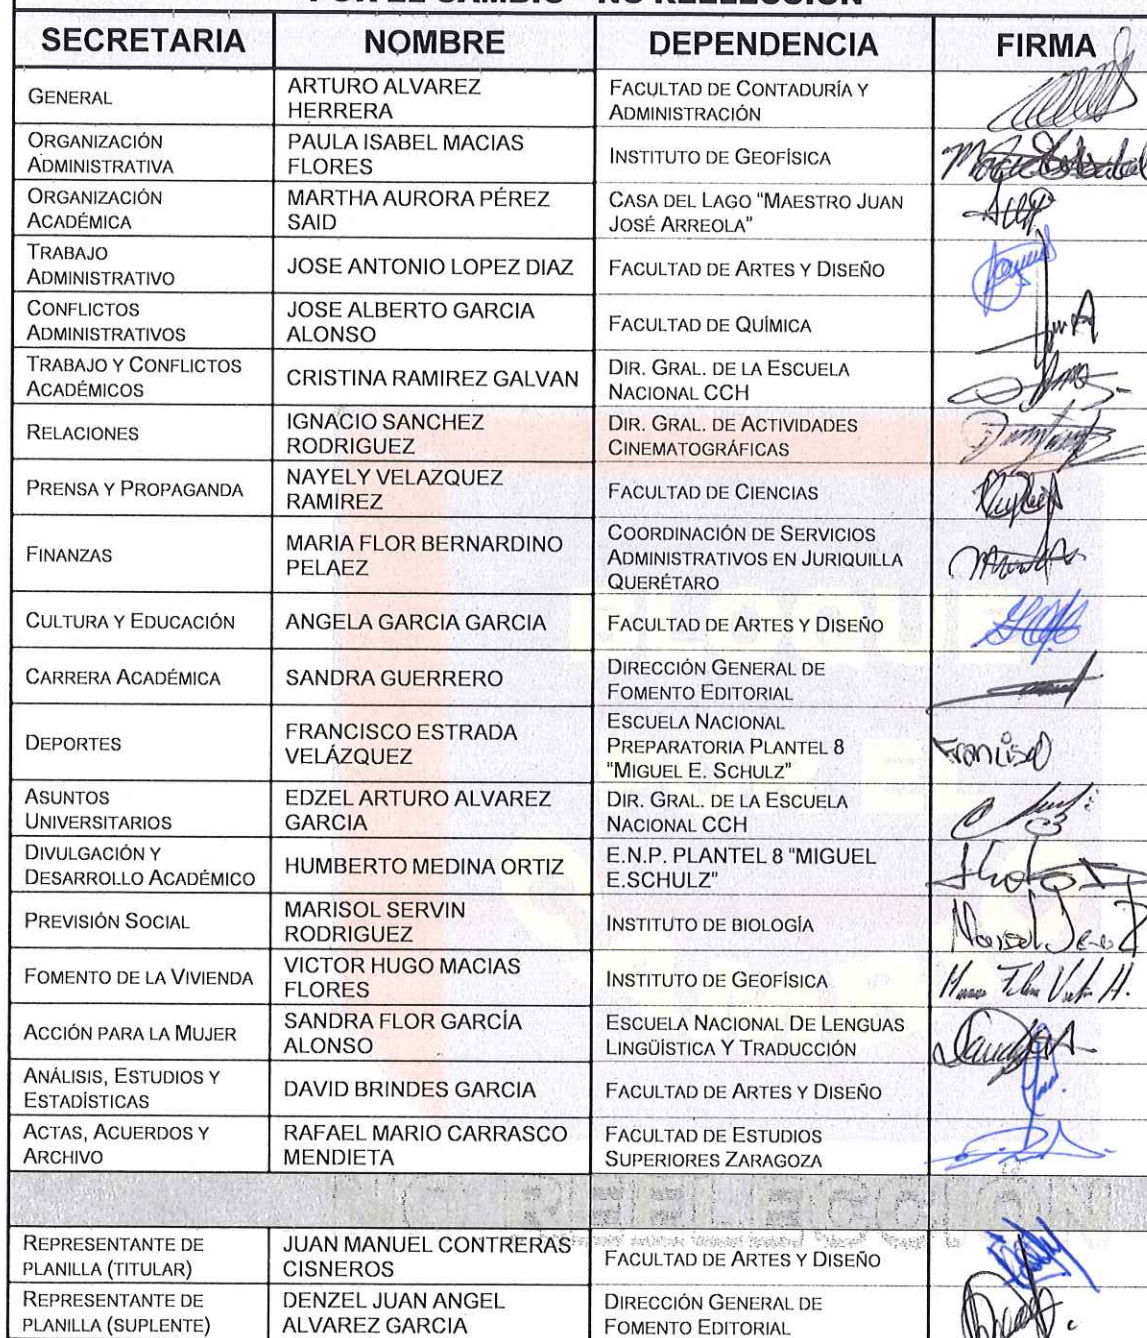 POR EL CAMBIO - NO REELECCIÓN
SECRETARIA NOMBRE DEPENDENCIA FIRMA
GENERAL
ARTURO ALVAREZ
HERRERA
FACULTAD DE CONTADURÍA Y
ADMINISTRACIÓN
ORGANIZACIÓN
ADMINISTRATIVA
PAULA ISABEL MACIAS
FLORES
INSTITUTO DE GEOFÍSICA
ORGANIZACIÓN
ACADÉMICA
MARTHA AURORA PÉREZ
SAID
CASA DEL LAGO "MAESTRO JUAN
JOSÉ ARREOLA"
TRABAJO
ADMINISTRATIVO
JOSE ANTONIO LOPEZ DIAZ
FACULTAD DE ARTES Y DISEÑO
CONFLICTOS
ADMINISTRATIVOS
JOSE ALBERTO GARCIA
ALONSO
FACULTAD DE QUÍMICA
TRABAJO Y CONFLICTOS
ACADÉMICOS
CRISTINA RAMIREZ GALVAN
DIR. GRAL. DE LA ESCUELA
NACIONAL CCH
RELACIONES
IGNACIO SANCHEZ
RODRIGUEZ
DIR. GRAL. DE ACTIVIDADES
CINEMATOGRÁFICAS
PRENSA Y PROPAGANDA
NAYELY VELAZQUEZ
RAMIREZ
FACULTAD DE CIENCIAS
FINANZAS
MARIA FLOR BERNARDINO
PELAEZ
COORDINACIÓN DE SERVICIOS
ADMINISTRATIVOS EN JURIQUILLA
QUERÉTARO
CULTURA Y EDUCACIÓN
ANGELA GARCIA GARCIA
FACULTAD DE ARTES Y DISEÑO
CARRERA ACADÉMICA
SANDRA GUERRERO
DIRECCIÓN GENERAL DE
FOMENTO EDITORIAL
DEPORTES
FRANCISCO ESTRADA
VELÁZQUEZ
ESCUELA NACIONAL
PREPARATORIA PLANTEL 8
"MIGUEL E. SCHULZ"
Francisco
ASUNTOS
UNIVERSITARIOS
EDZEL ARTURO ALVAREZ
GARCIA
DIR. GRAL. DE LA ESCUELA
NACIONAL CCH
DIVULGACIÓN Y
DESARROLLO ACADÉMICO
HUMBERTO MEDINA ORTIZ
E.N.P. PLANTEL 8 "MIGUEL
E.SCHULZ"
PREVISIÓN SOCIAL
MARISOL SERVIN
RODRIGUEZ
INSTITUTO DE BIOLOGÍA
FOMENTO DE LA VIVIENDA
VICTOR HUGO MACIAS
FLORES
INSTITUTO DE GEOFÍSICA
ACCIÓN PARA LA MUJER
SANDRA FLOR GARCÍA
ALONSO
ESCUELA NACIONAL DE LENGUAS
LINGÜÍSTICA Y TRADUCCIÓN
ANÁLISIS, ESTUDIOS Y
ESTADÍSTICAS
DAVID BRINDES GARCIA
FACULTAD DE ARTES Y DISEÑO
ACTAS, ACUERDOS Y
ARCHIVO
RAFAEL MARIO CARRASCO
MENDIETA
FACULTAD DE ESTUDIOS
SUPERIORES ZARAGOZA
REPRESENTANTE DE
PLANILLA (TITULAR)
JUAN MANUEL CONTRERAS
CISNEROS
FACULTAD DE ARTES Y DISEÑO
REPRESENTANTE DE
PLANILLA (SUPLENTE)
DENZEL JUAN ANGEL
ALVAREZ GARCIA
DIRECCIÓN GENERAL DE
FOMENTO EDITORIAL